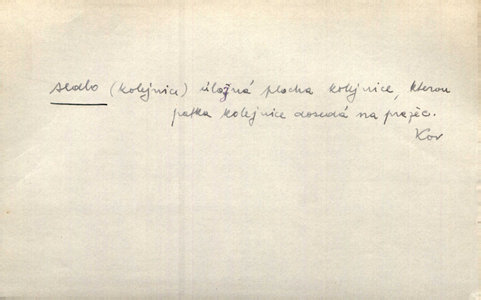 sedlo (kolejnice) úložná plocha kolejnice, kterou
patka kolejnice dosedá na pražec.
Kov